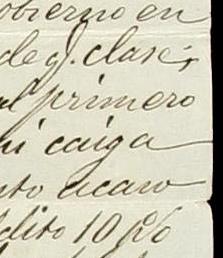 obierno en
de q. clase;
al primero
ni caiga
nto acaso
édito 10 p%